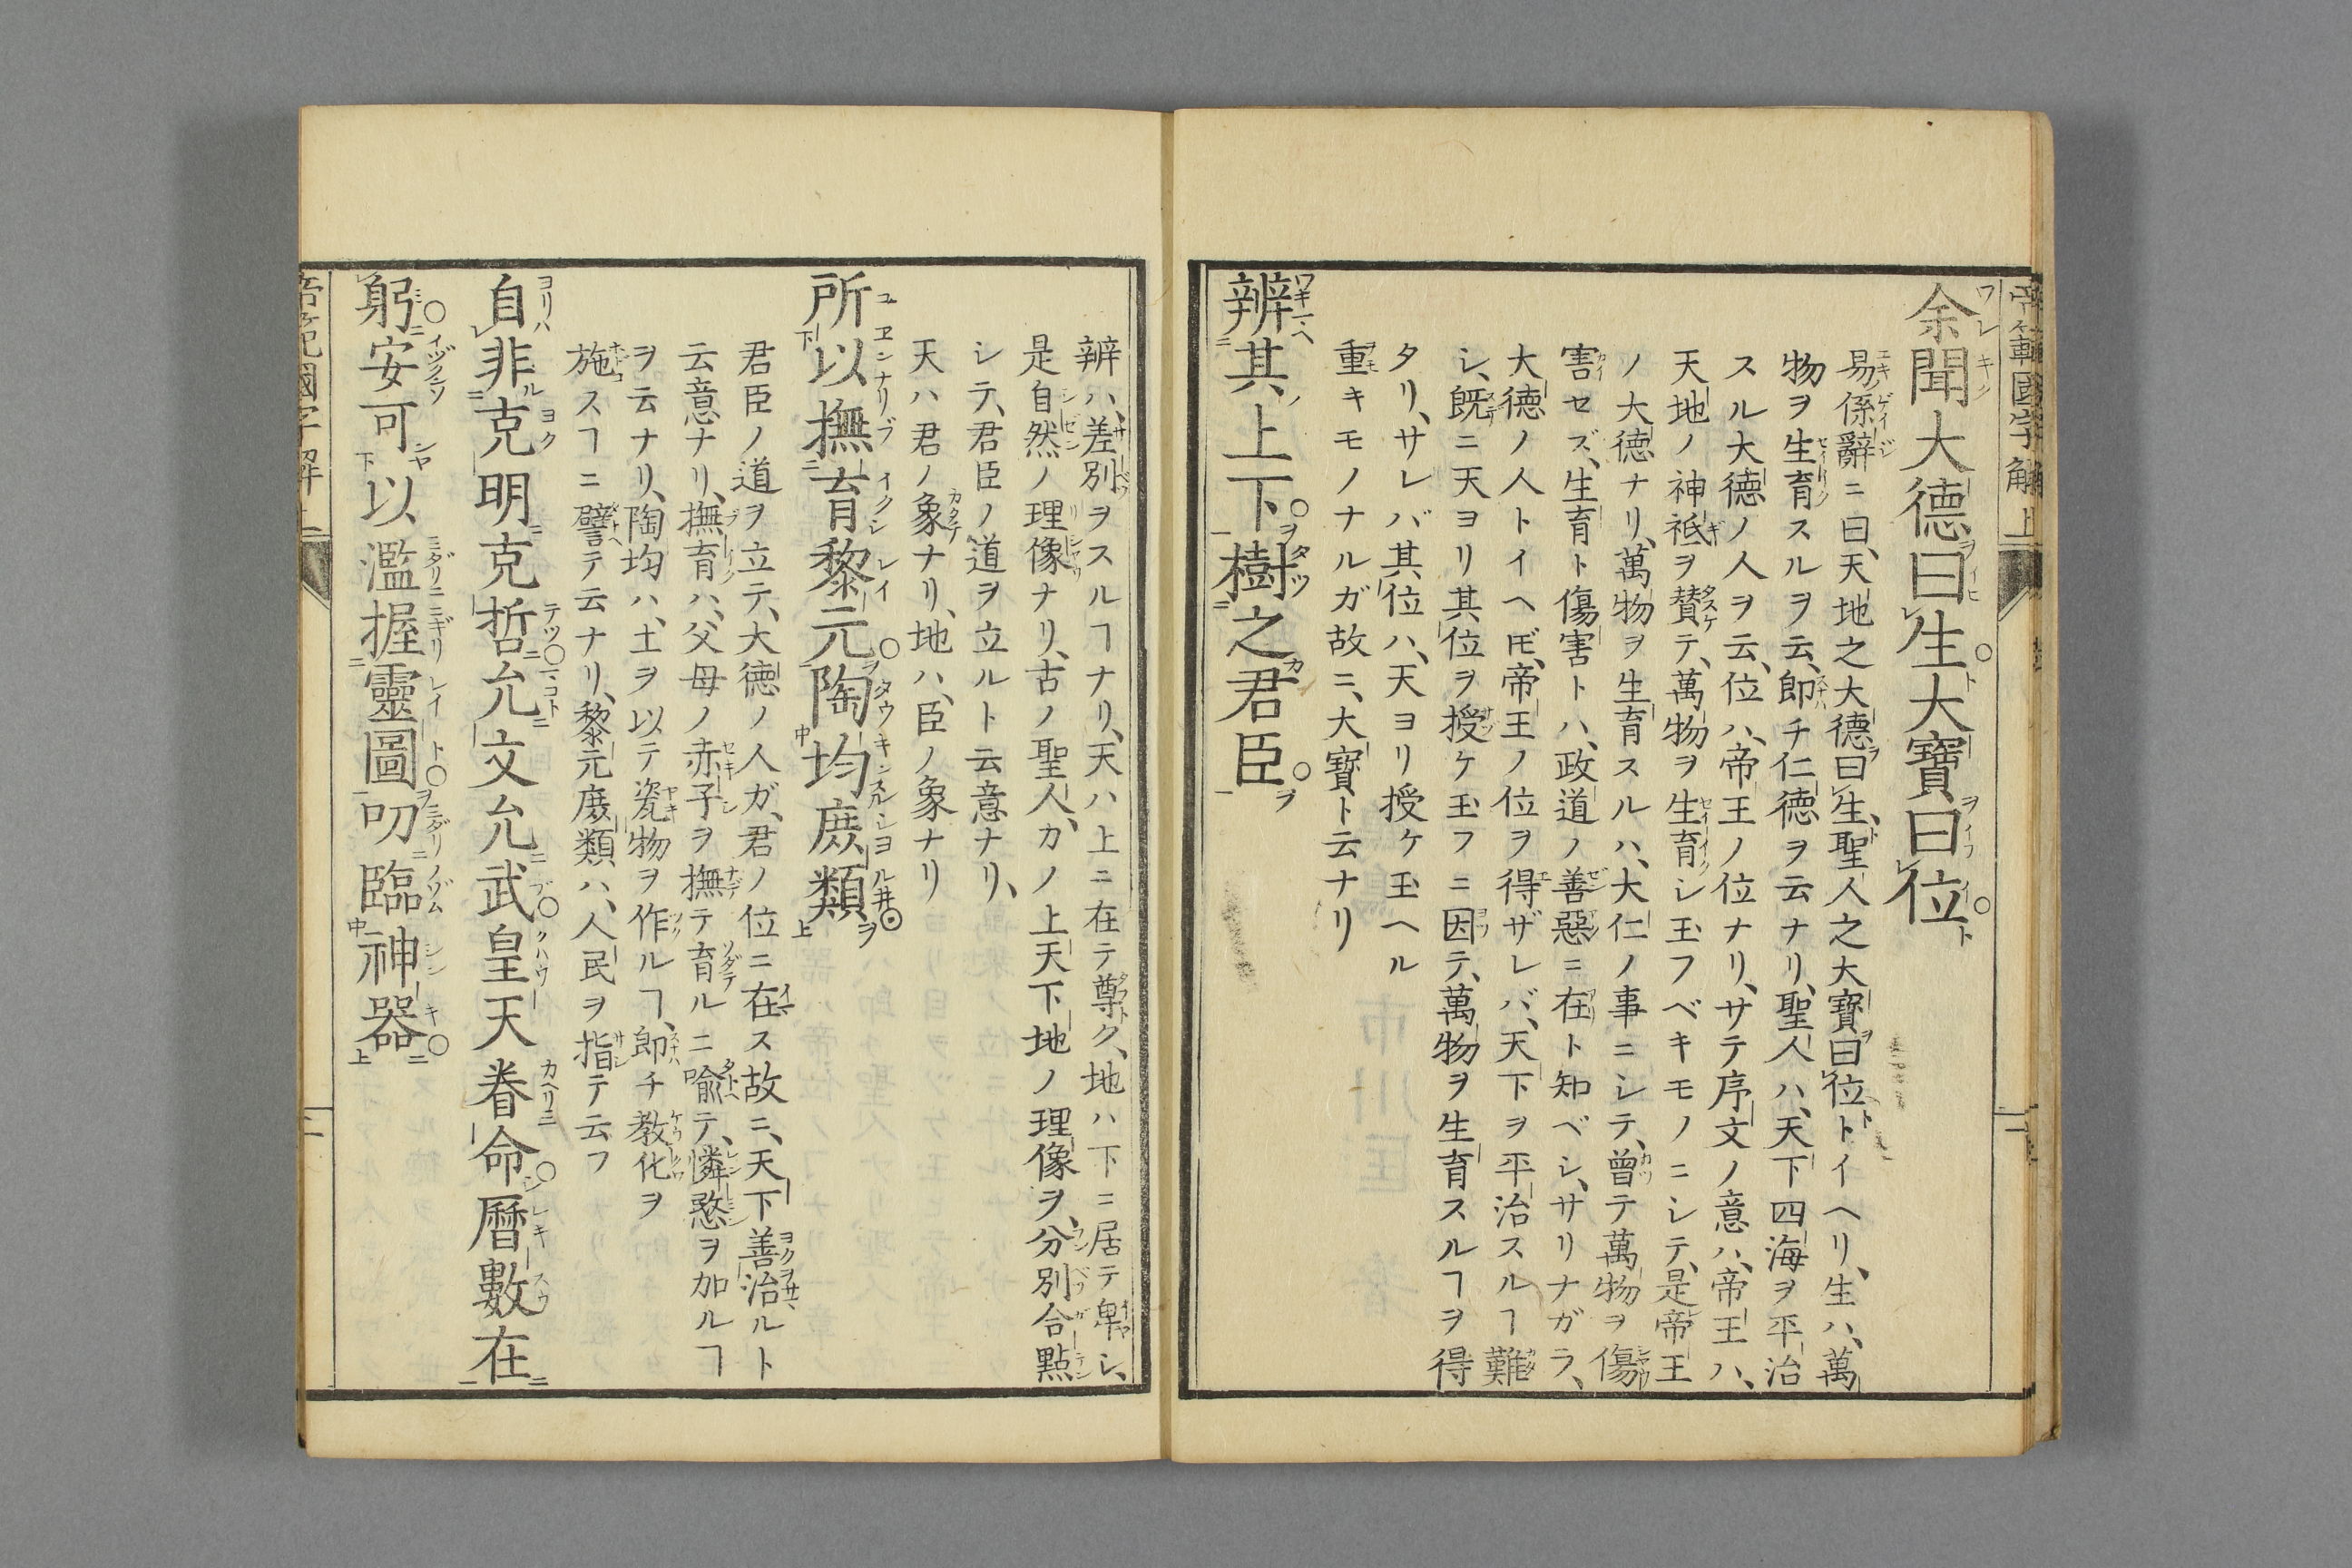 帝範國字解上
余聞大德曰生大寶曰位
易係辭ニ曰、天地之大德曰生、聖人之大寶曰位トイヘリ、生ハ、萬
物ヲ生育スルヲ云、即チ仁德ヲ云ナリ、聖人ハ、天下四海ヲ平治
スル大德ノ人ヲ云、位ハ、帝王ノ位ナリ、サテ序文ノ意ハ、帝王ハ、
天地ノ神祇ヲ賛テ、萬物ヲ生育シ玉フベキモノニシテ、是帝王
ノ大德ナリ、萬物ヲ生育スルハ、大仁ノ事ニシテ、曾テ萬物ヲ傷
害セズ、生育ト傷害トハ、政道ノ善惡ニ在ト知ベシ、サリナガラ、
大德ノ人トイヘ𪜈、帝王ノ位ヲ得ザレバ、天下ヲ平治スルヿ難
シ、既ニ天ヨリ其位ヲ授ケ玉フニ因テ、萬物ヲ生育スルヿヲ得
タリ、サレバ其位ハ、天ヨリ授ケ玉ヘル
重キモノナルガ故ニ、大寶ト云ナリ
辨其上下樹之君臣
辨ハ、差別ヲスルヿナリ、天ハ上ニ在テ尊ク、地ハ下ニ居テ卑シ、
是自然ノ理像ナリ、古ノ聖人、カノ上天下地ノ理像ヲ、分別合點
シテ、君臣ノ道ヲ立ルト云意ナリ、
天ハ君ノ象ナリ、地ハ、臣ノ象ナリ
所以撫育黎元陶均庶類
君臣ノ道ヲ立テ、大德ノ人ガ、君ノ位ニ在ス故ニ、天下善治ルト
云意ナリ、撫育ハ、父母ノ赤子ヲ撫テ育ルニ喩テ、憐愍ヲ加ルヿ
ヲ云ナリ、陶均ハ、土ヲ以テ瓷物ヲ作ルヿ、即チ教化ヲ
施スヿニ譬テ云ナリ、黎元庶類ハ、人民ヲ指テ云フ
自非克明克哲允文允武皇天眷命曆數在
躬安可以濫握靈圖叨臨神器